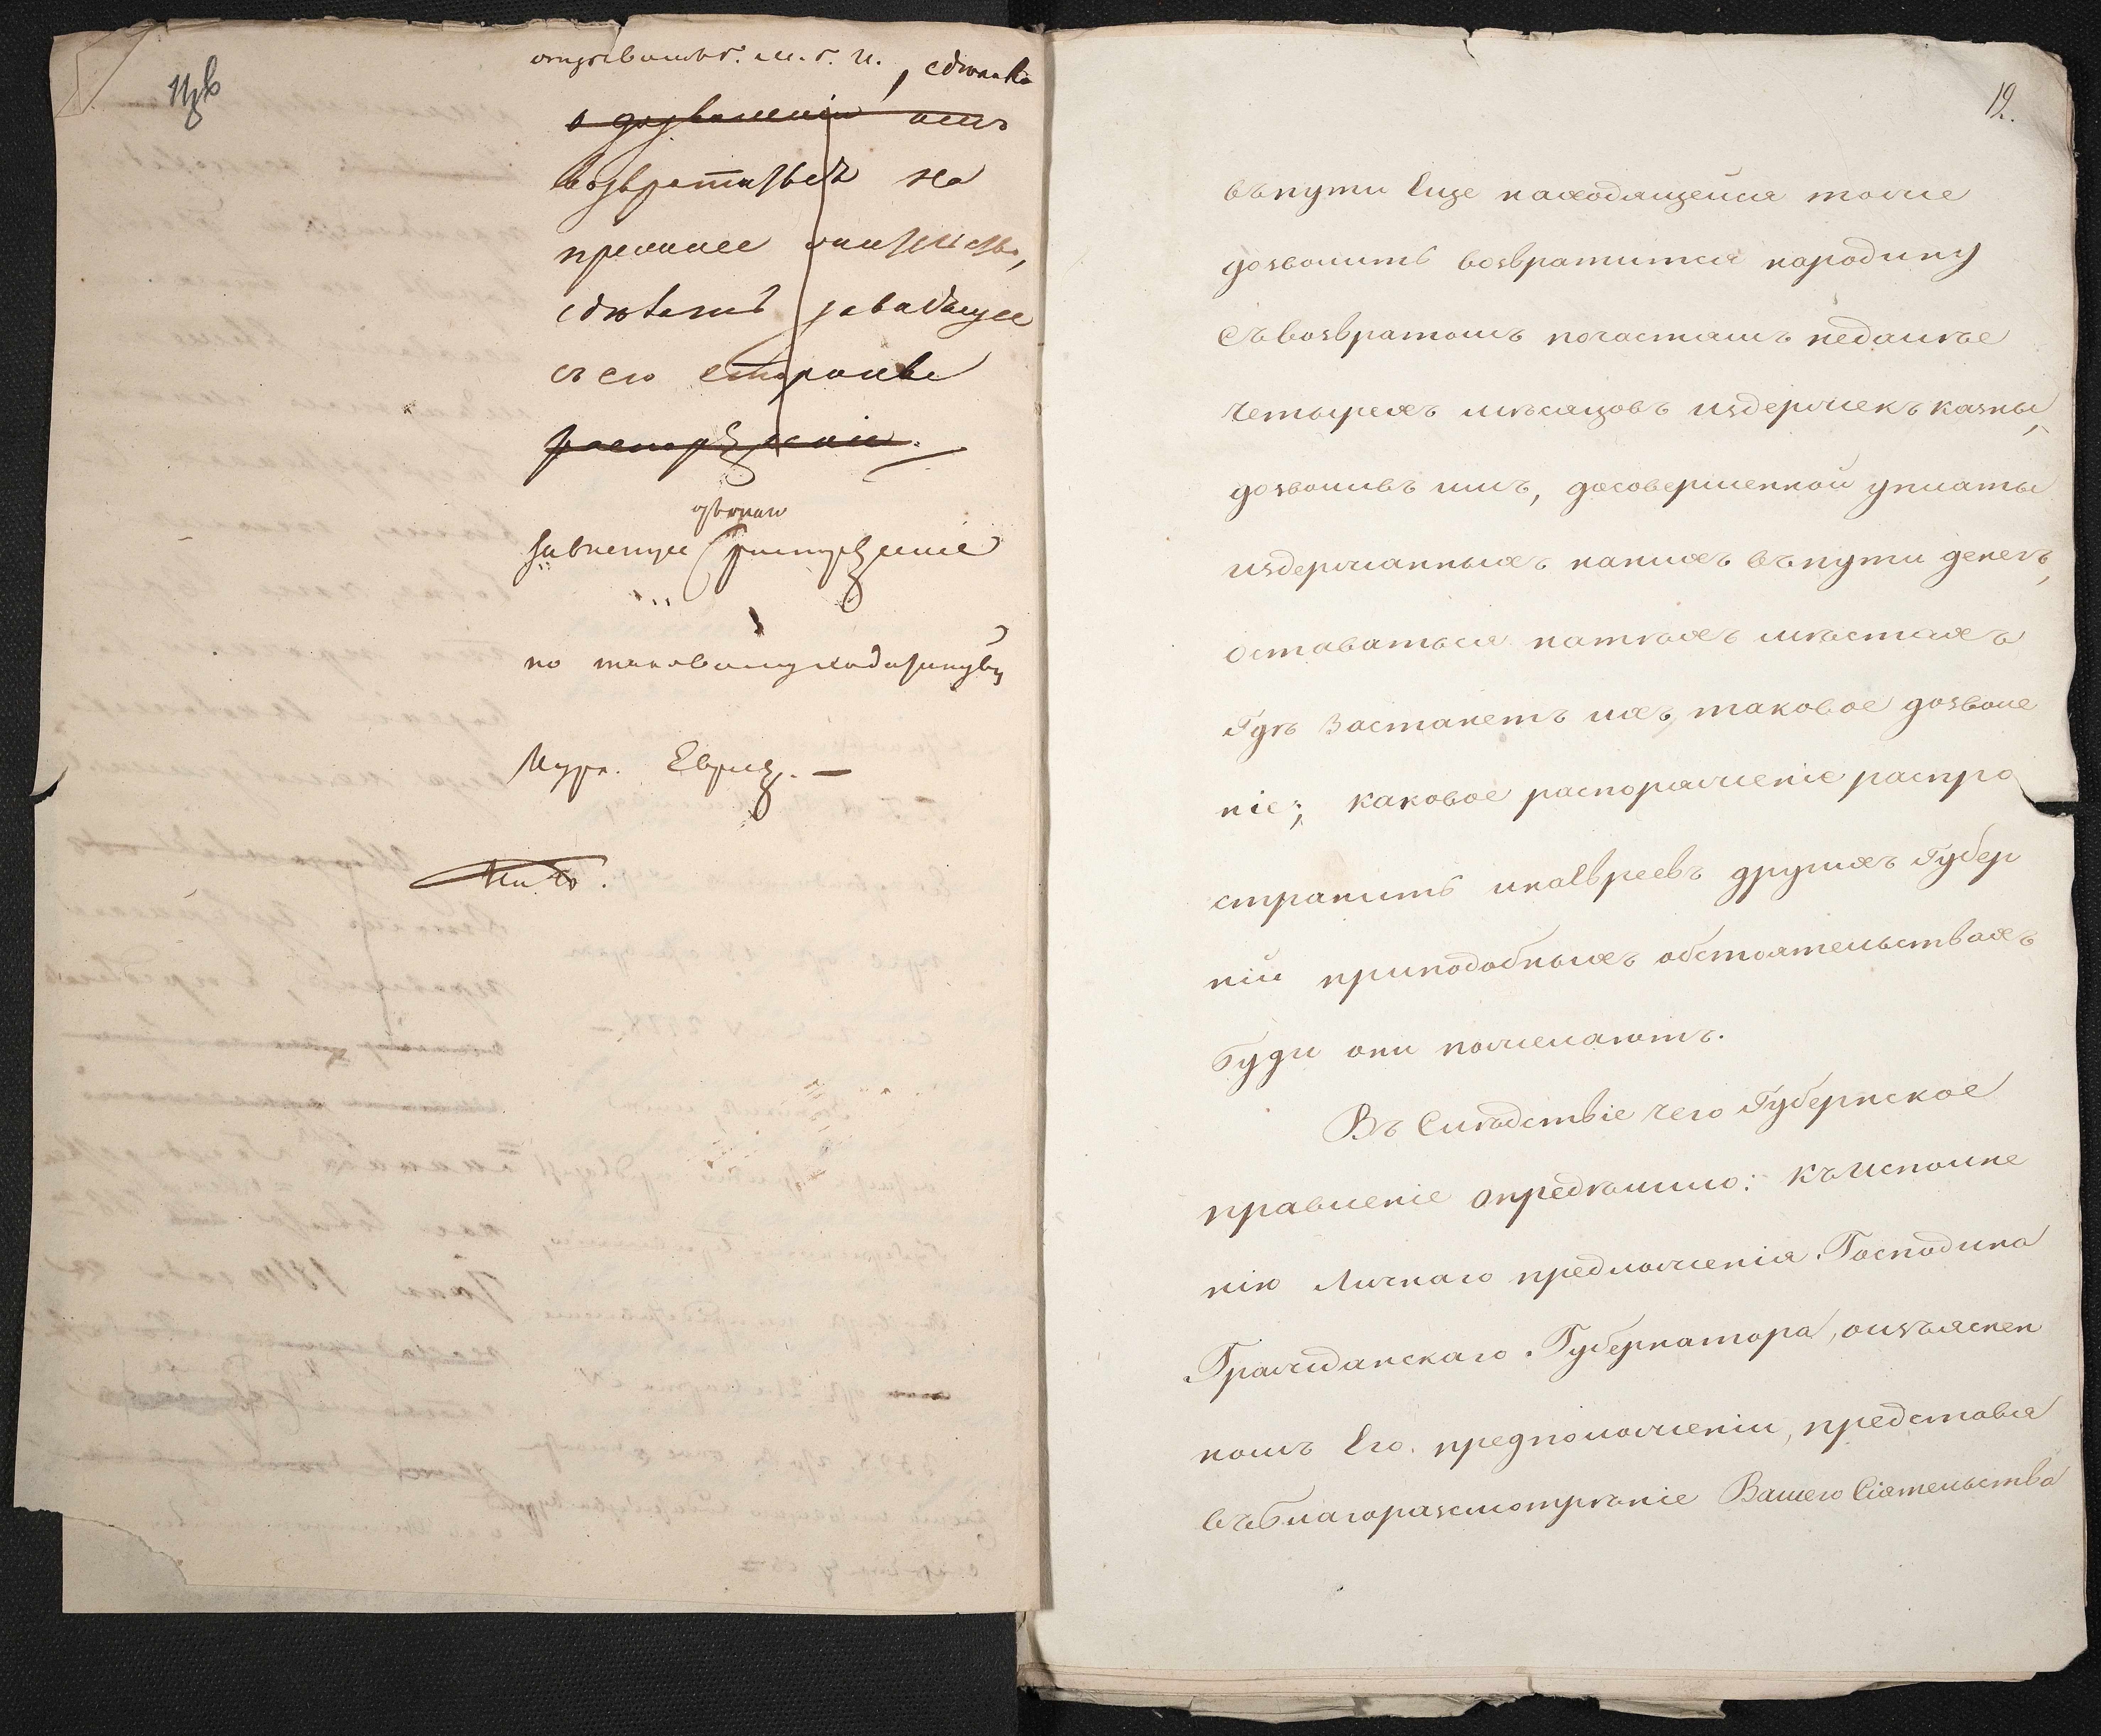 м. г. и.,
о дозволеніи имъ
возвратиться на
прежнее жительство,
сдѣлать зависящее
съ его стороны
распоряженіе.
зависящее распоряженіе
по таковому ходатайству
Курл. Евреевъ. —
12.
въпути Еще находящейся также
дозволить возвратится народину
Съвозвратомъ почастямъ недалѣе
Четырехъ мѣсяцовъ издержекъ казны,
дозволивъ имъ, досовершенной уплаты
издержанныхъ нанихъ въпути денегъ,
оставаться натѣхъ мѣстахъ
Гдѣ Застанетъ ихъ, таковое дозволе
ніе; каковое распоряженіе распро
странить инаЕвреевъ другихъ Губер
ній приподобныхъ обстоятельствахъ
буди они пожелаютъ.
Въ Слѣдствіе чего Губернское
правленіе Опредѣлило: Къисполне
нію Личнаго предложенія Господина
Гражданскаго Губернатора, оизъяснен
номъ Его предположеніи, представя
въблагоразсмотрѣніе Вашего Сіятельства